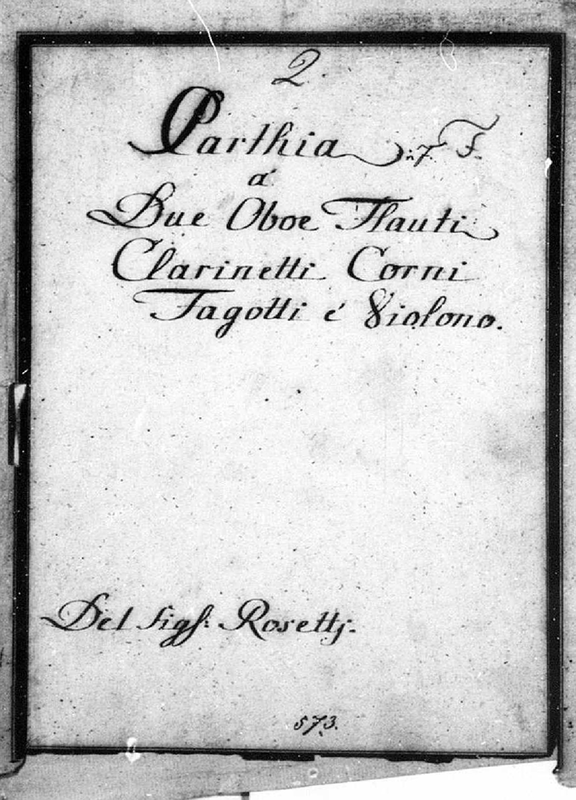 2.
Parthia in F.
a
Due Oboe Flauti
Clarinetti Corni
Fagotti é Violono.
Del Sigh: Rosettj.
573.